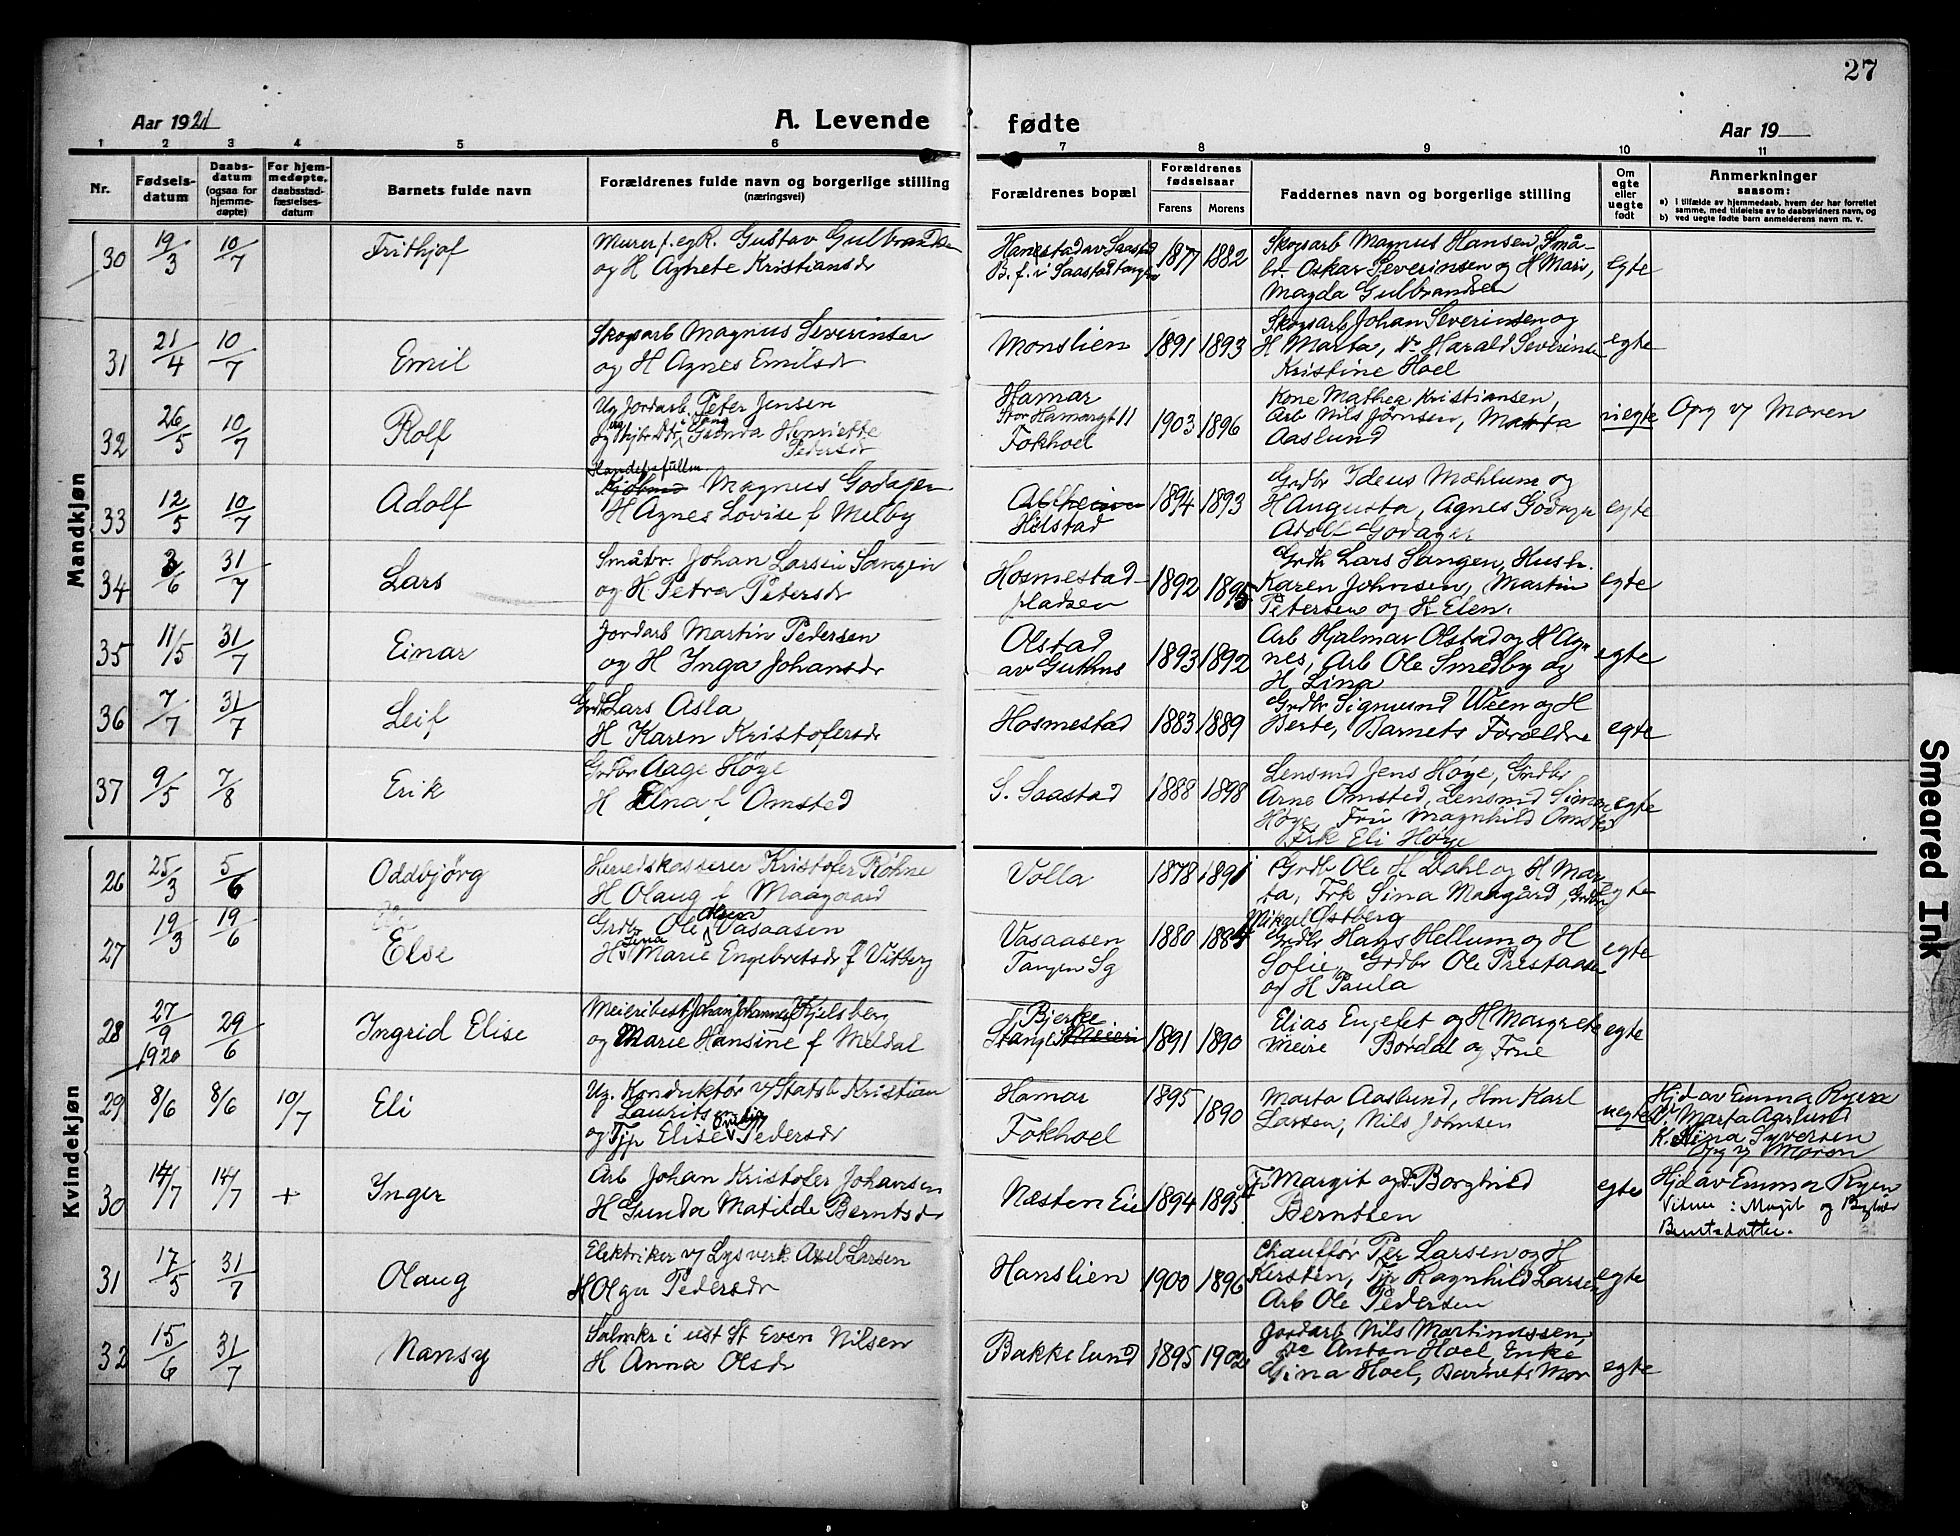 27
Aar 1921
A. Levende
fødte
Aar 19
1 2 3 4 5 6 7 8 9 10 11
Nr.
Fødsels-
datum
Daabs-
datum
(ogsaa for
hjemme-
døpte)
For hjem-
medøpte,
daabsstad-
fæstelses-
datum
Barnets fulde navn
Forældrenes fulde navn og borgerlige stilling
(næringsvei)
Forældrenes bopæl
Forældrenes
fødselsaar
Farens Morens
Faddernes navn og borgerlige stilling
Om
egte
eller
uegte
født
Anmerkninger
saasom:
a) I tilfælde av hjemmedaab, hvem der har forrettet
samme, med tilføielse av to daabsvidners navn, og
b) ved uegte fødte barn anmelderens navn m. v.
Mandkjøn
30 19/3 10/7 Frithjof
Murer f. egR. Gustav Gulbrandsen
og H Agnete Kristiansdr
Hanestad av Saastad
B. f. i Saastadtangen
1877 1882
Skogsarb Magnus Hansen, Små-
br. Oskar Severinsen og H Mari,
Magda Gulbrandsen
egte
31 21/4 10/7 Emil
Skogsarb Magnus Severinsen
og H Agnes Emilsdr
Monslien
1891 1893
Skogsarb Johan Severinsen og
H Marta, Do Harald Severinsen
Kristine Hoel
egte
32 26/5 10/7 Rolf
Ug Jordarb. Peter Jensen
Gunda Henriette
Pedersdr
Hamar
Fokhoel
1903 1896
Kone Mathea Kristiansen,
Arb Nils Jørnsen, Marta
Aaslund
uegte
Opg v/ Moren
33 12/5 10/7 Adolf
Handelsfullm.
Magnus Godager
H Agnes Lovise f Melby
Hilstad
1894 1893
Grdbr Ideus Mæhlum og
H Augusta, Agnes Godager
Adolf Godager
egte
34 3/6 31/7 Lars
Småbr. Johan Larsen Sangen
og H Petra Petersdr
Hosmestad-
pladsen
1892 1895
Grdb Lars Sangen, Hustr.
Karen Johnsen, Martin
Petersen og H Elen.
egte
35 11/5 31/7 Einar
Jordarb Martin Pedersen
og H Inga Johansdr
Olstad
av Guthus
1893 1892
Arb Hjalmar Olstad og H Ag-
nes, Arb Ole Smedby og
H Lina
egte
36 7/7 31/7 Leif
Grdb Lars Asla
H Karen Kristofersdr
Hosmestad
1883 1889
Grdbr Sigmund Ween og H
Berte, Barnets Forældre
egte
37 9/5 7/8 Erik
Grdbr Aage Høye
H Elna f Omsted
S. Saastad
1888 1898
Lensmd Jens Høye, Grdbr
Arne Omsted, Lensmd
Høye, Fru Magnhild Omsted
Frk Eli Høye
egte
Kvindekjøn
26 25/3 5/6 Oddbjørg
Heredskasserer Kristofer Røhne
H Olaug f Maagaard
Volla
1878 1891
Grdb Ole H Dahl og H Mar-
ta, Frk Sina Maagård, Grdbr
Mikael Østberg
egte
27 19/3 19/6 Else
Grdbr Ole Olsen Vasaasen
H Lina Marie Engebretsdr f Vitberg
Vasaasen
Tangen Sg
1880 1884
Grdbr Hans Hellum og H
Sofie, Grdbr Ole Prestaasen
og H Paula
egte
28 27/9 1920 29/6 Ingrid Elise
Meieribest Johan Johannes Kjelsberg
og Marie Hansine f Meldal
Bjerke
Stange Meieri
1891 1890
Elias Engeset og H Margrete
Meire Bordal og Frue
egte
29 8/6 8/6 10/7 Eli
Ug. Konduktør v/ Statsb Kristian
Laurits
og Tjp Elise Pedersdr
Hamar
Fokhoel
1895 1890
Marta Aaslund, Hm Karl
Larsen, Nils Johnsen
uegte
Hjd av Emma Ryen
V. Marta Aaslund
K. Stina Syversen
Opg v/ Moren
30 14/7 14/7 + Inger
Arb Johan Kristofer Johansen
H Gunda Matilde Berntsdr
Næsten Eie
1894 1895
Margit og Borghild
Berntsen
egte
Hjd av Emma Ryen
Vidner: Margit og
Berntsdatter.
31 17/5 31/7 Olaug
Elektriker v/ Lysverk Axel Larsen
H Olga Pedersdr
Hanslien
1900 1896
Chauffør Per Larsen og H
Kirsten, Tjp Ragnhild Larsen
Arb Ole Pedersen
egte
32 15/6 31/7 Nansy
Salmkr i ust St Even Nilsen
H Anna Olsdr
Bakkelund
1895 1902
Jordarb Nils Martinussen,
Do Anton Hoel, Enke
Gina Hoel, Barnets Mor
egte
Smeared Ink